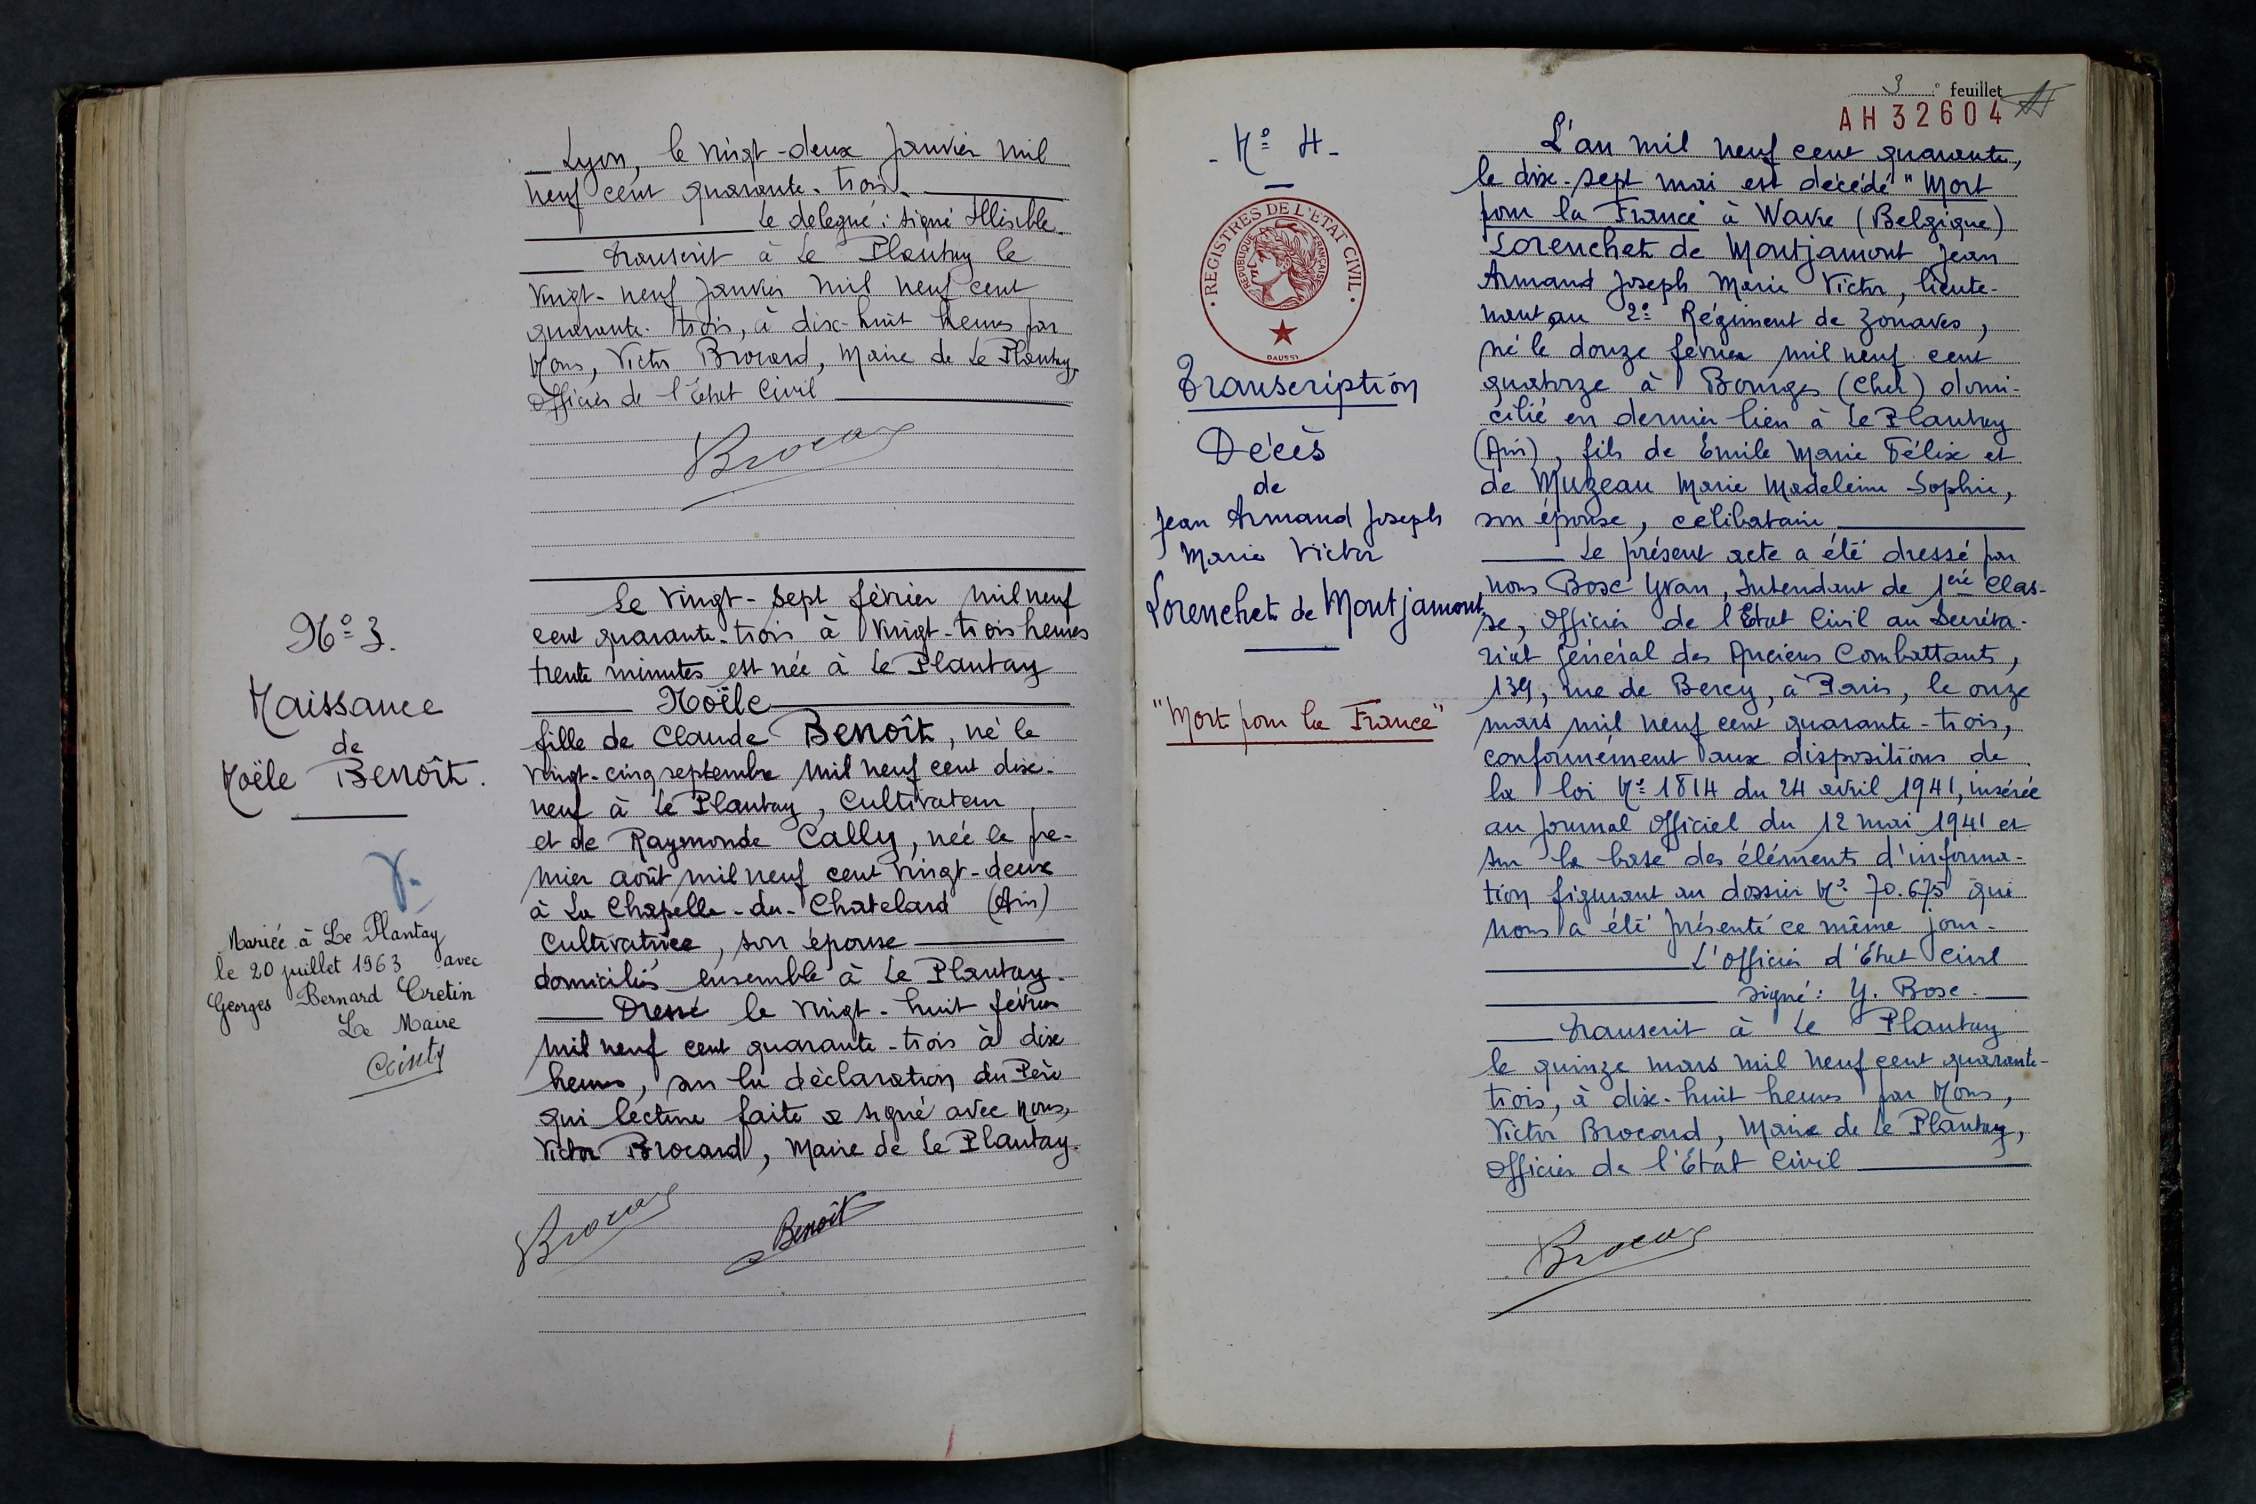 Lyon, le vingt-deux Janvier mil
neuf cent quarante-trois.
Le délégué : signé Illisible.
Transcrit à Le Plantay le
vingt-neuf Janvier mil neuf cent
quarante-trois, à dix-huit heures par
Nous, Victor Brocard, Maire de Le Plantay,
Officier de l'État Civil
Brocard
N° 3.
Naissance
de
Noële Benoît.
Mariée à Le Plantay
le 20 juillet 1963 avec
Georges Bernard Cretin
Le Maire
Le vingt-sept février mil neuf
cent quarante-trois à vingt-trois heures
trente minutes est née à Le Plantay
Noële
fille de Claude Benoît, né le
vingt-cinq septembre mil neuf cent dix-
neuf à Le Plantay, Cultivateur
et de Raymonde Cally, née le pre-
mier août mil neuf cent vingt-deux
à La Chapelle-du-Chatelard (Ain)
Cultivatrice, son épouse
domiciliés ensemble à Le Plantay.
Dressé le vingt-huit février
mil neuf cent quarante-trois à dix
heures, sur la déclaration du Père
qui lecture faite a signé avec Nous,
Victor Brocard, Maire de Le Plantay.
Brocard Benoît
3e feuillet
AH 32604
- N° 4 -
REGISTRES DE L'ÉTAT CIVIL
RÉPUBLIQUE FRANÇAISE
DAUSSI
Transcription
Décès
de
Jean Armand Joseph
Marie Victor
Lorenchet de Montjamont
"Mort pour la France"
L'an mil neuf cent quarante,
le dix-sept mai est décédé "Mort
pour la France" à Wavre (Belgique)
Lorenchet de Montjamont Jean
Armand Joseph Marie Victor, lieute-
nant au 2e Régiment de Zouaves,
né le douze février mil neuf cent
quatorze à Bourges (Cher) domi-
cilié en dernier lieu à Le Plantay
(Ain), fils de Emile Marie Félix et
de Muzeau Marie Madeleine Sophie,
son épouse, célibataire
Le présent acte a été dressé par
nous Bosc Yvan, Intendant de 1ère Clas-
se, Officier de l'État Civil au Secréta-
riat Général des Anciens Combattants,
139, rue de Bercy, à Paris, le onze
mars mil neuf cent quarante-trois,
conformément aux dispositions de
la loi N° 1814 du 24 avril 1941, insérée
au Journal Officiel du 12 mai 1941 et
sur la base des éléments d'informa-
tion figurant au dossier N° 70.675 qui
nous a été présenté ce même jour.
L'Officier d'État Civil
Signé : Y. Bosc.
Transcrit à Le Plantay
le quinze mars mil neuf cent quarante-
trois, à dix-huit heures par Nous,
Victor Brocard, Maire de Le Plantay,
Officier de l'État Civil
Brocard